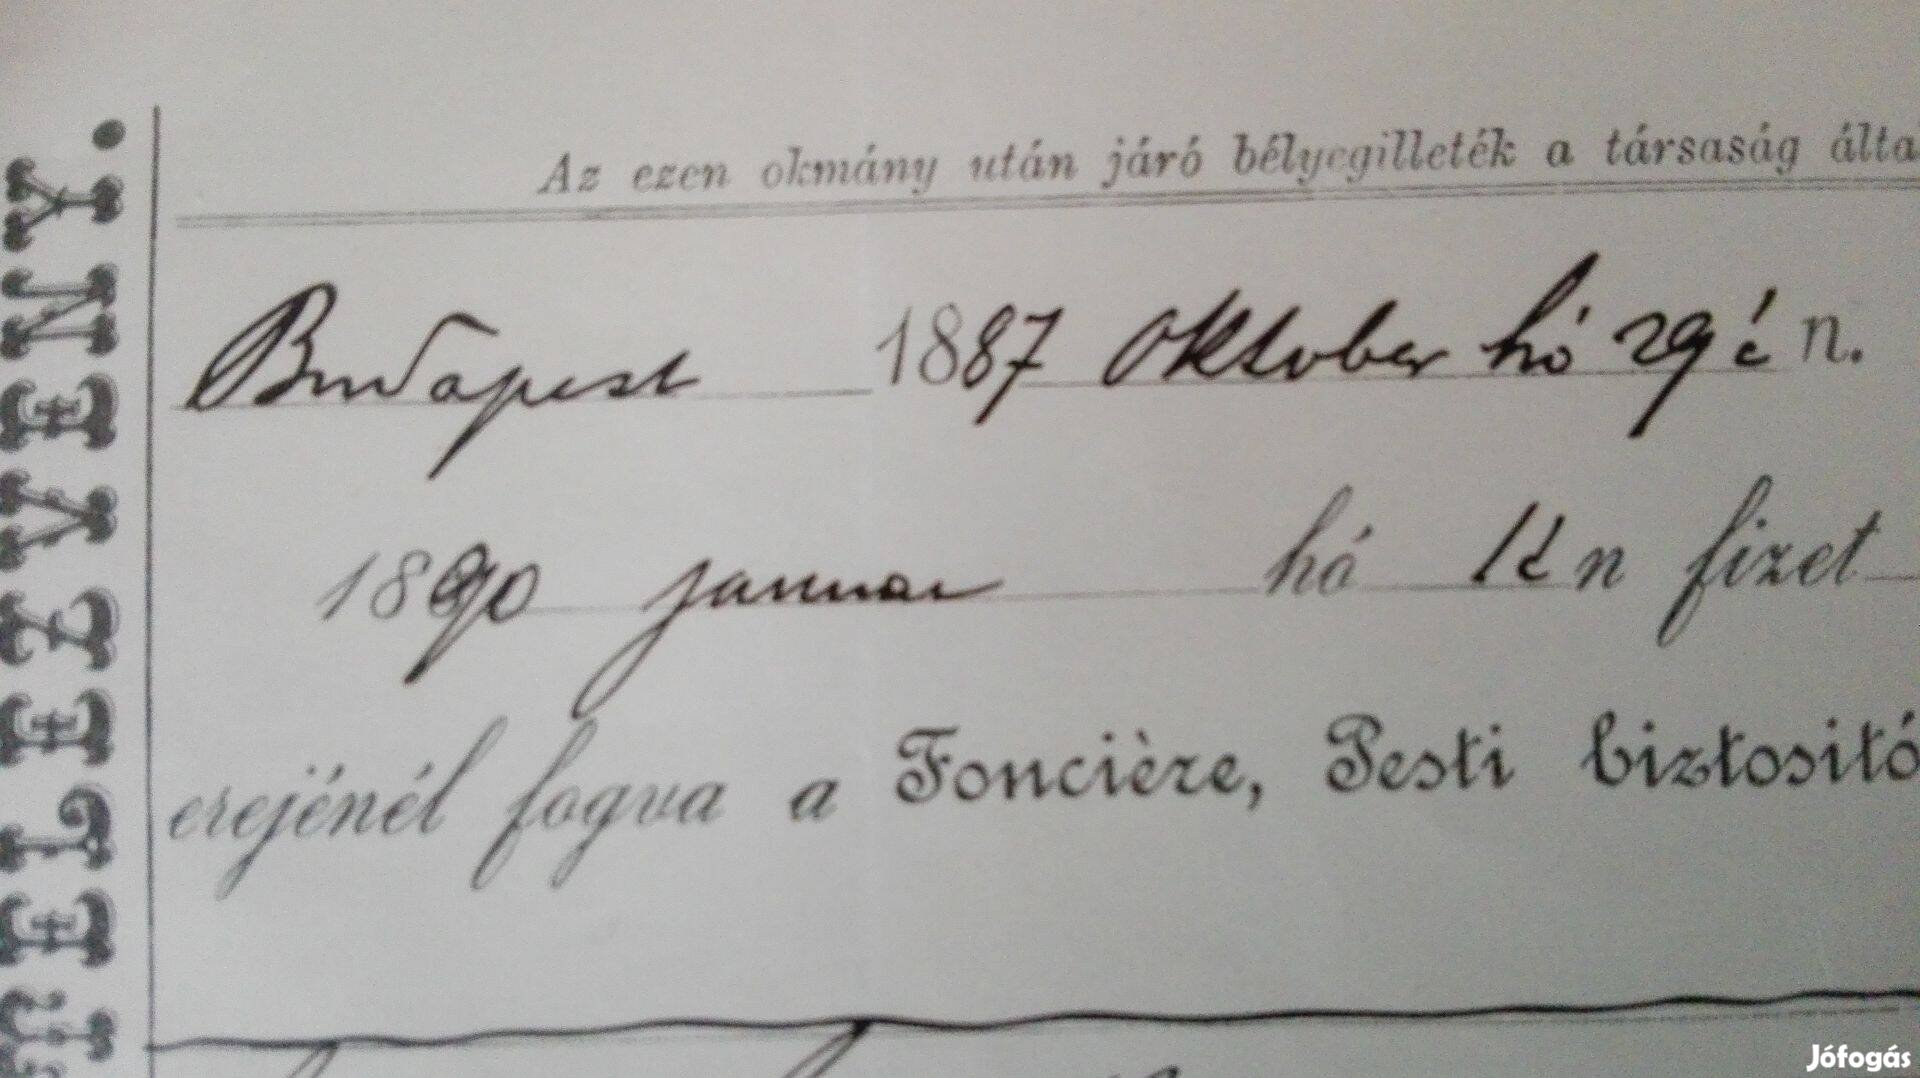 Az ezen okmány után járó bélyegilleték a társaság álta
Budapest 1887 Oktober hó 29én.
1890 januar hó 1én fizet
erejénél fogva a Foncière, Pesti biztositó
TELEZVENY.
Jófogás